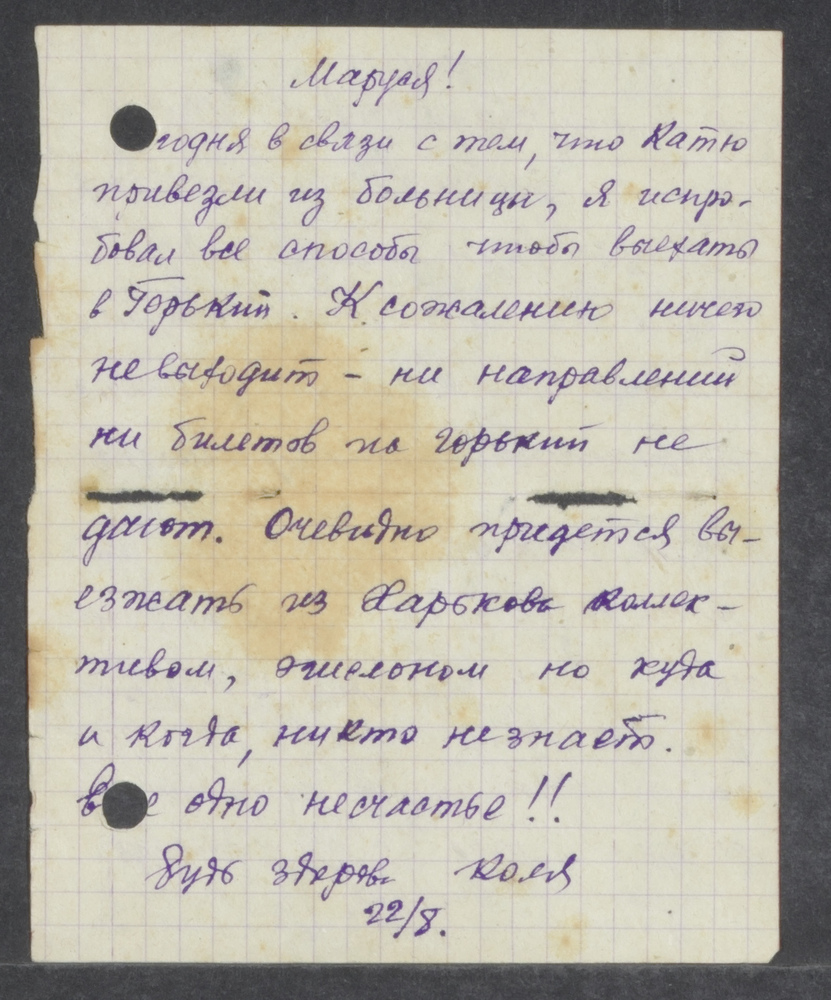 Маруся!
годня в связи с тем, что Катю
привезли из больницы, я испро-
бовал все способы чтобы выехать
в Горький. К сожалению ничего
невыходит - ни направлений
ни билетов на горький не
дают. Очевидно придется вы-
езжать из Харькова коллек-
тивом, эшелоном но куда
и когда, никто незнает.
в е одно несчастье!!
Будь здорова Коля
22/8.